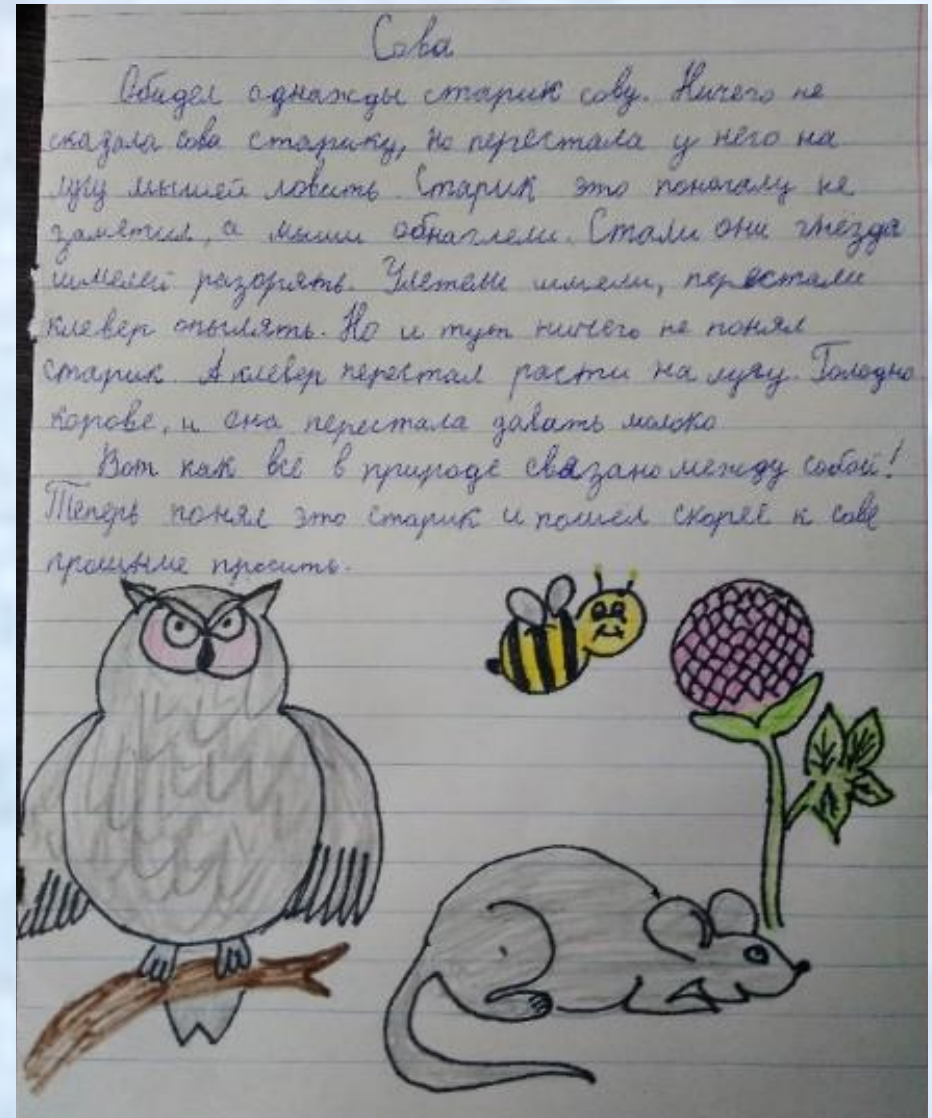 Сова
Обидел однажды старик сову. Ничего не
сказала сова старику, но перестала у него на
лугу мышей ловить. Старик это поначалу не
заметил, а мыши обнаглели. Стали они гнёзда
шмелей разорять. Улетели шмели, перестали
клевер опылять. Но и тут ничего не понял
старик. А клевер перестал расти на лугу. Голодно
корове, и она перестала давать молоко
Вот как всё в природе связано между собой!
Теперь понял это старик и пошёл скорее к сове
прощение просить.